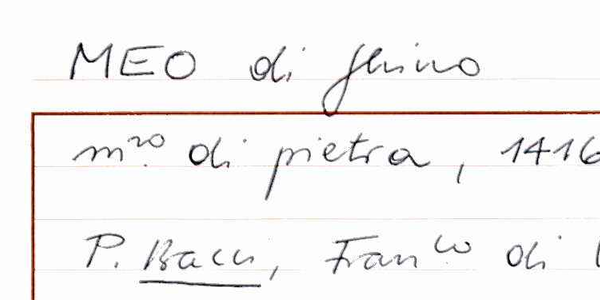 MEO di Ghino
m.ro di pietra, 1416
P. Bacci, Fran.co di